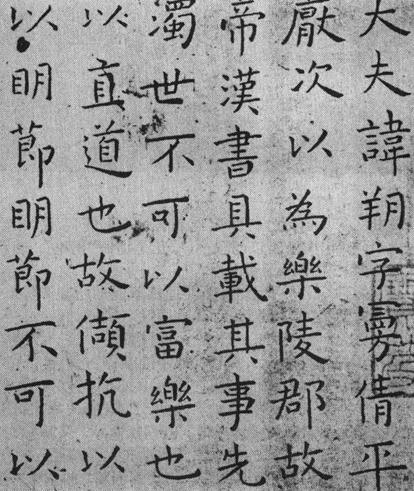 大夫諱朔字曼倩平
厭次以為樂陵郡故
帝漢書具載其事先
濁世不可以富樂也
以直道也故頡抗以
以明節明節不可以